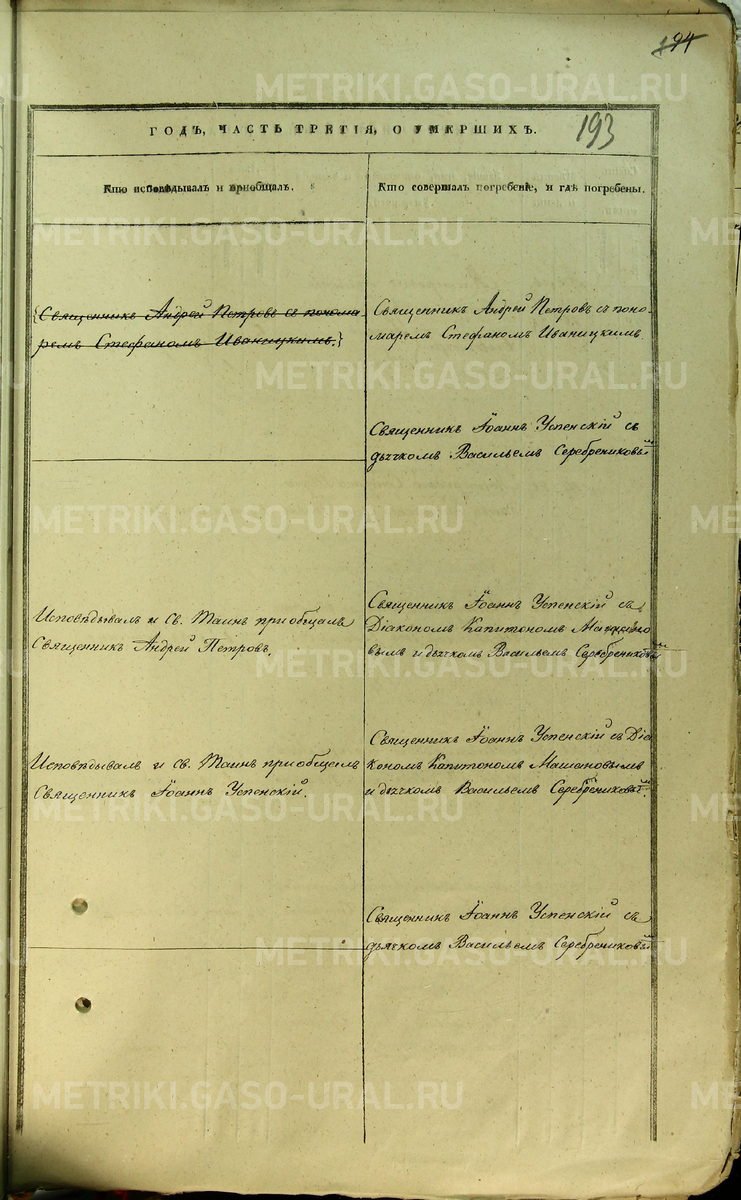 194
193
ГОДЪ, ЧАСТЬ ТРЕТІЯ, О УМЕРШИХЪ.
Кто исповѣдывалъ и приобщалъ.
Кто совершалъ погребеніе, и гдѣ погребены.
{Священникъ Андрей Петровъ съ понома
ремъ Стефаномъ Иваницкимъ.}
Священникъ Андрей Петровъ съ поно-
маремъ Стефаномъ Иваницкимъ.
Священникъ Іоаннъ Успенскій съ
дьячкомъ Васильемъ Серебрениковымъ
Исповѣдывалъ и Св. Таинъ приобщалъ
Священникъ Андрей Петровъ.
Священникъ Іоаннъ Успенскій съ
Діакономъ Капитономъ
вымъ и дьячкомъ Васильемъ Серебрениковымъ
Исповѣдывалъ и св. Таинъ приобщалъ
Священникъ Іоаннъ Успенскій.
Священникъ Іоаннъ Успенскій съ Діа
кономъ Капитономъ Машановымъ
и дьячкомъ Васильемъ Серебрениковымъ.
Священникъ Іоаннъ Успенскій съ
дьячкомъ Васильемъ Серебрениковымъ
METRIKI.GASO-URAL.RU